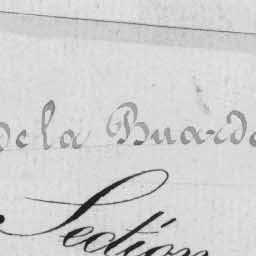 de la Buarde
Section